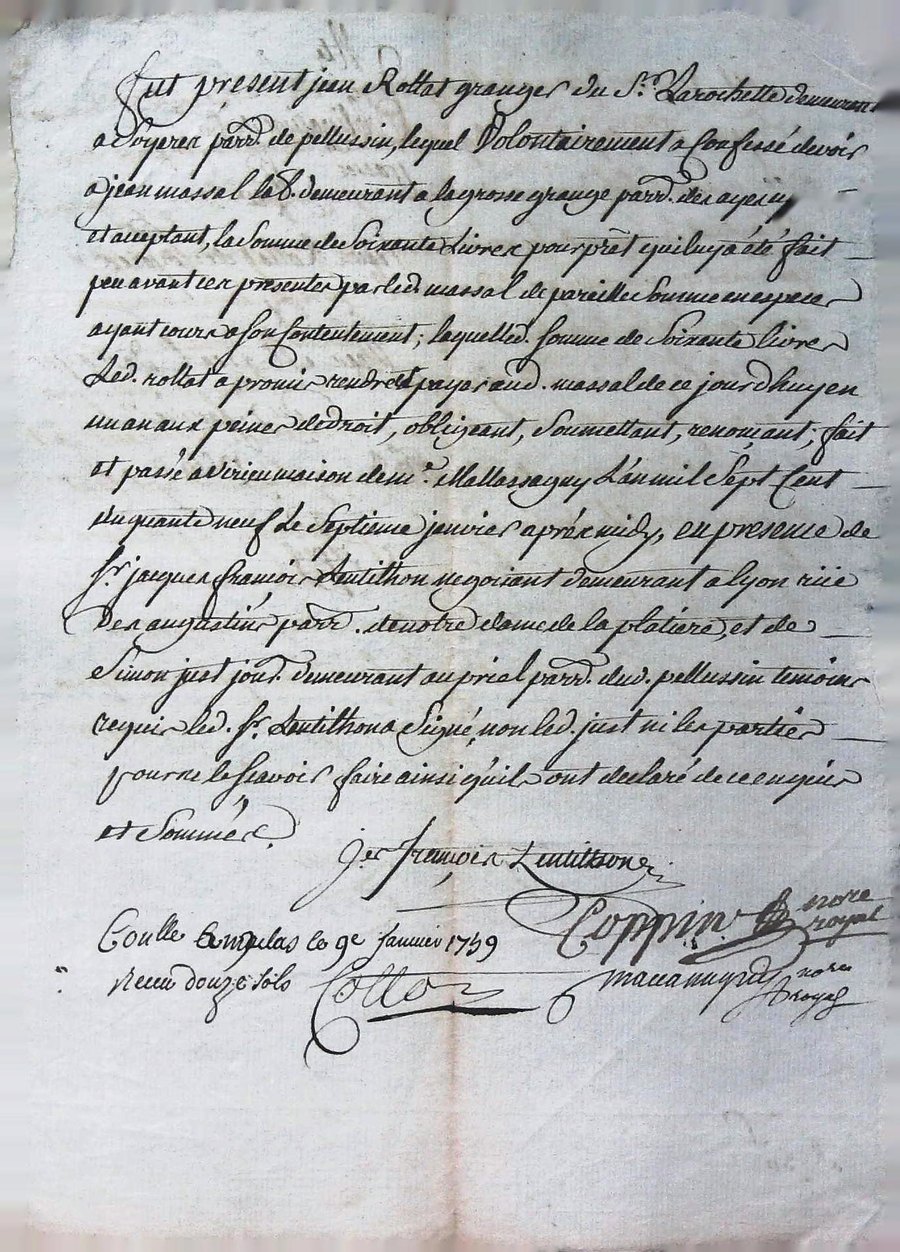 fut présent jean Rollat granger du Sr. Larochette demeurant
a Soyeren parr. de pellussin, lequel Volontairement a Confessé devoir
a jean massal lab. demeurant a la grosse grange parr. des ayes icy
et aceptant, la Somme de Soixante Livres pour prêt qui luy a été fait
peu avant ces presentes par led. massal de pareille Somme en especes
ayant cours a son Contentement; laquelle d. Somme de Soixante livres
Led. rollat a promis rendre et payer aud. massal de ce jourd'huy en
un an aux peines de droit, obligeant, Soumettant, renonçant; fait
et passé a Virieu maison de me. Mallassagny L'an mil Sept Cent
Cinquante neuf Le Septieme janvier aprés midy, en presence de
Sr. jacques françois Lentillhon negotiant demeurant a lyon rüe
Des augustins parr. de notre dame de la platiere, et de
Simon just jour. demeurant au priel parr. dud. pellussin temoins
requis led. Sr. Lentillhon a Signé, non led. just ni les parties
pour ne le sçavoir faire ainsi qu'ils ont declaré de ce enquis
et Sommés.
jes françois Lentillhon
Coppin nore
royal
Conllé a le 9e janvier 1759
Receu douze sols
nore
royal